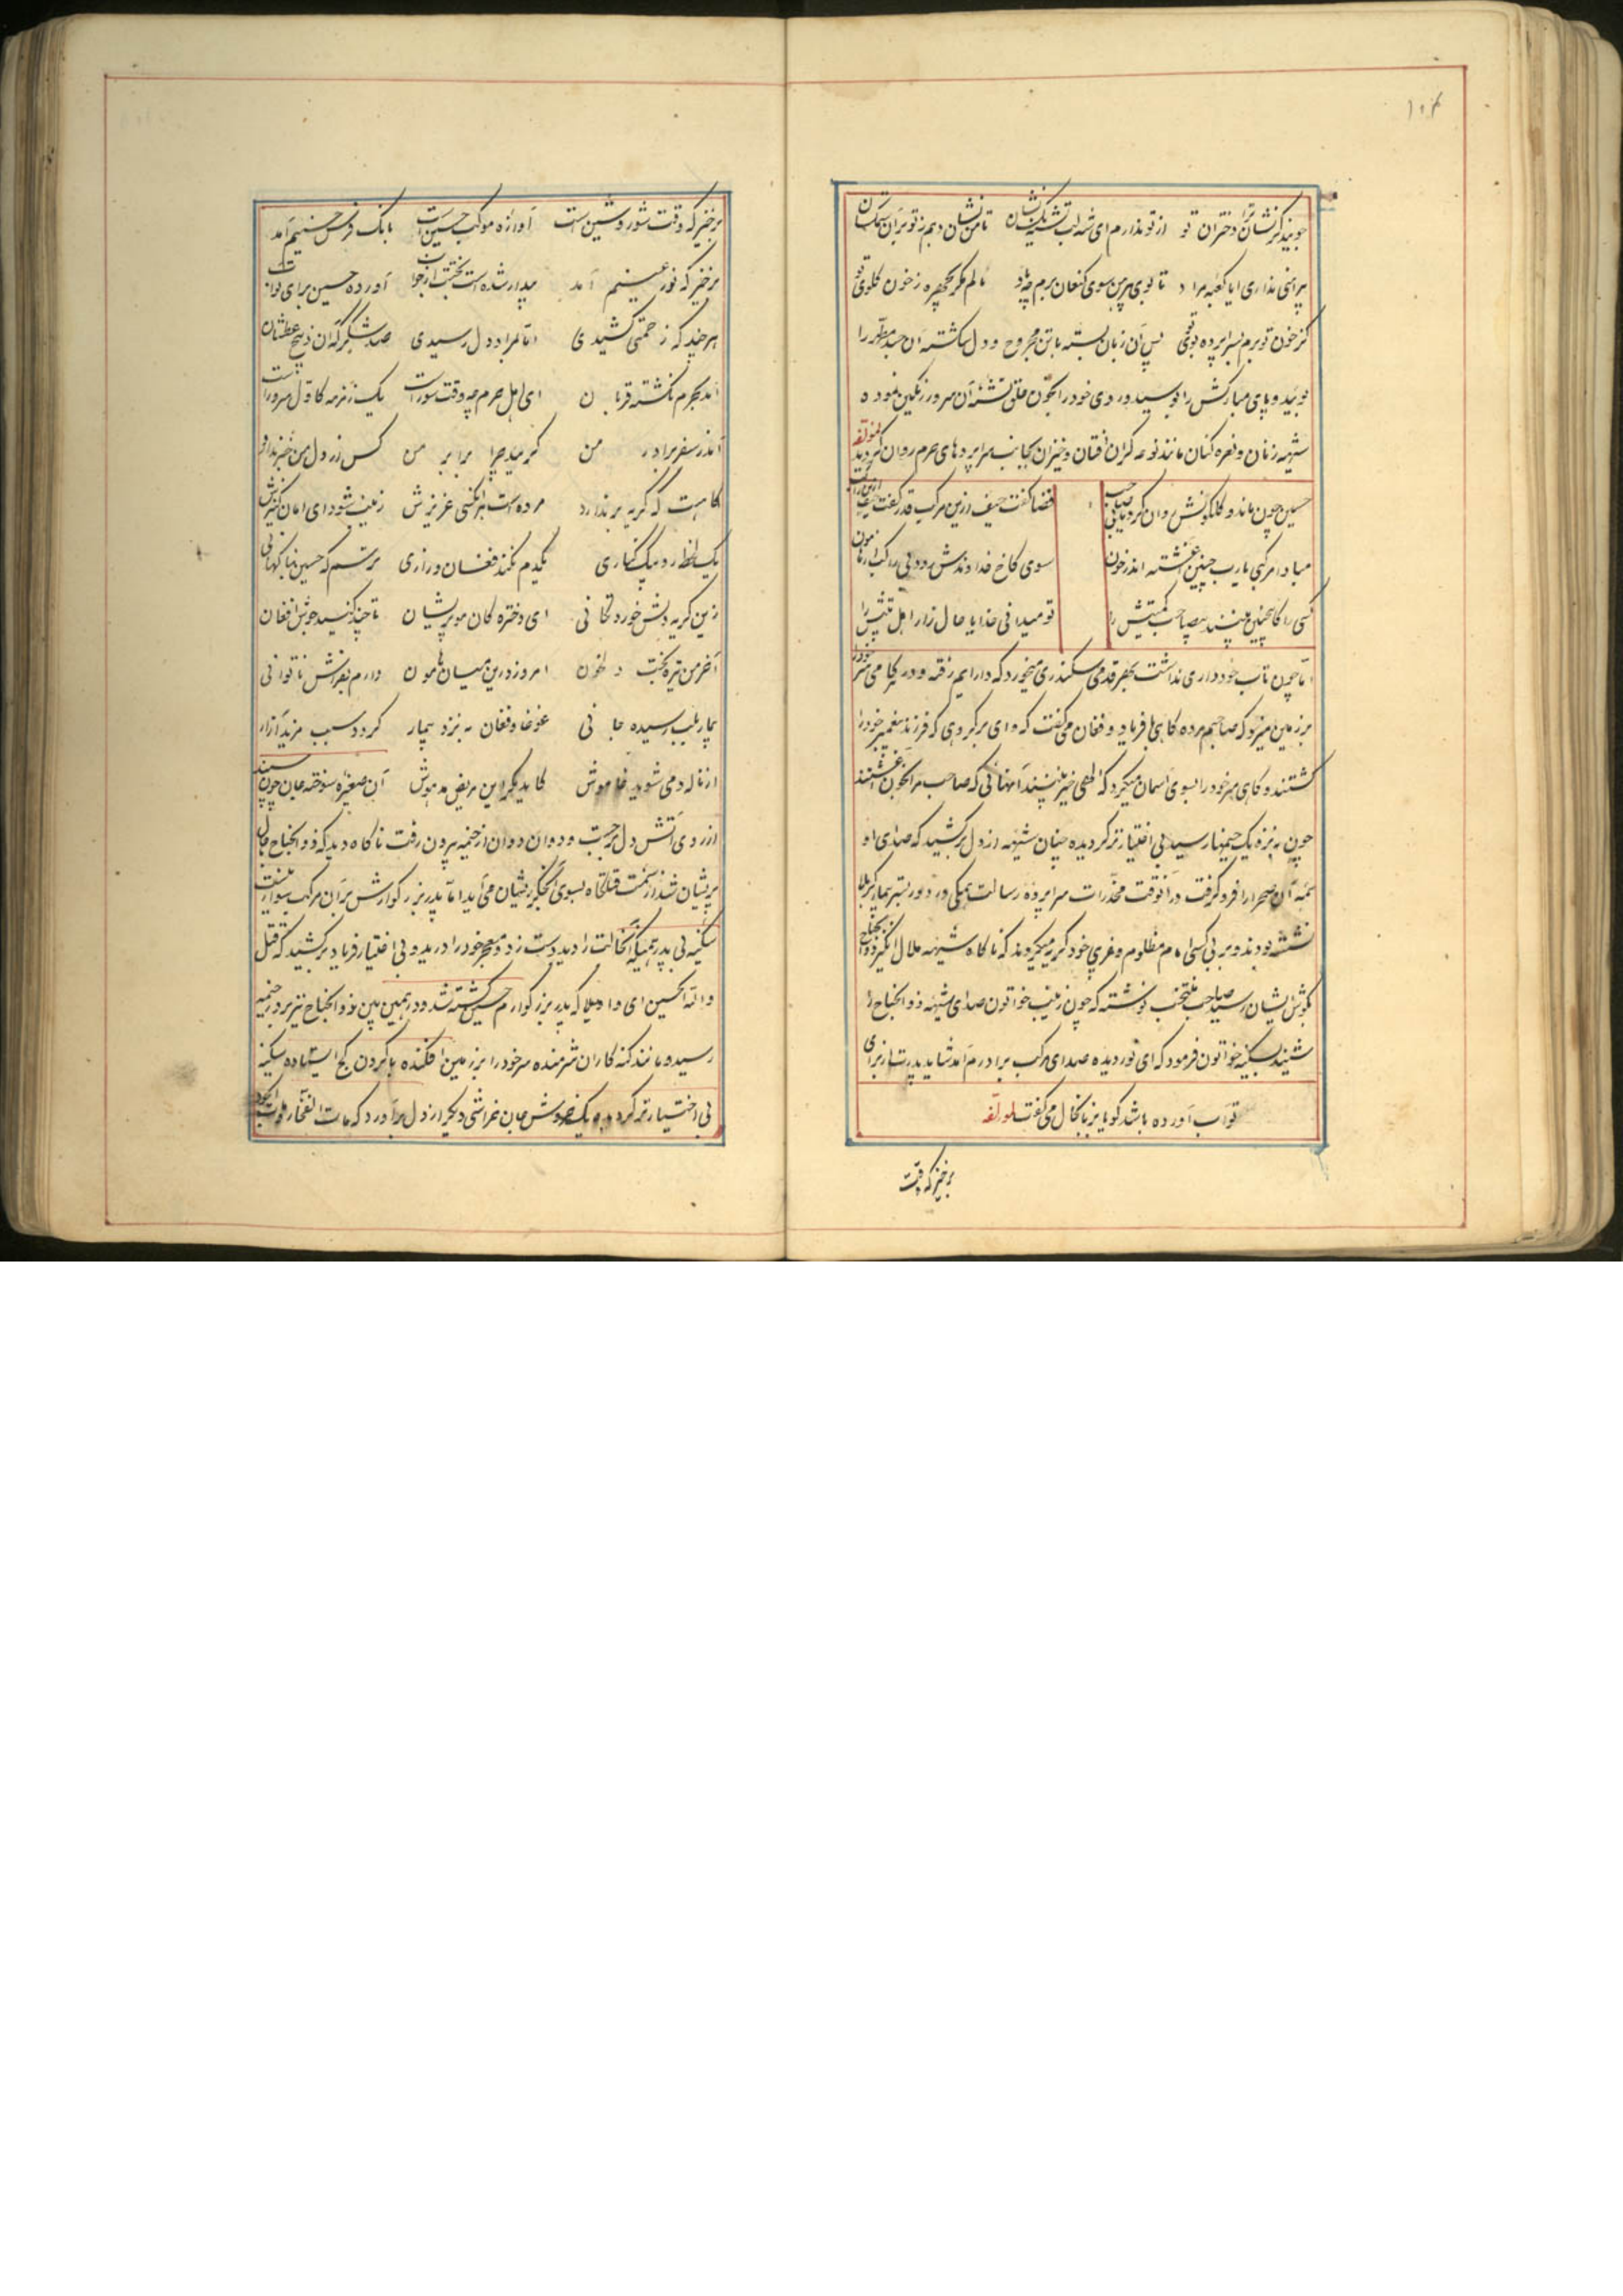 ۱۰۴
جویند گر نشان ترا دختران تو از تو ندارم ای شه لب تشنه یک نشان تا من نشان دهم ز تو بر آن
پیراهنی نداری ایا کعبه مراد تا بوی پیرهن سوی کنعان برم چه باد مالم مگر بچهره ز خون گلوی تو
کز خون تو برم بسرا پرده تو پس آن زبان بسته با تن مجروح و دل شکسته آن جسد مطهر را
بوئید و پای مبارکش را بوسید و روی خود را بخون حلق تشنه آن سرور رنگین نموده
شیهه زنان و نعره کنان مانند نوعه گران افتان و خیزان بجانب سراپرده‌های حرم روان گردید لمؤلفه
حسین چون ماند و گلگونش روان کرد قضا گفت حیف ازین مرکب قدر گفت حیف
مبادا مرکبی یا رب چنین آغشته اندر خون سوی کاخ خداوندش رود بی راکب
کسی را کاینچنین بیند بیصاحب کمیتش را تو میدانی خدایا حال زار اهل بیتش را
اما چون تاب خودداری نداشت بهر قدمی سکندری میخورد که در ایم رفته و در هر گامی سر خود را
بر زمین میزد که صاحبم مرده گاهی با فریاد و فغان می‌گفت که وای بر گروهی که فرزند پیغمبر خود را
کشتند و گاهی سر خود را بسوی آسمان میکرد که الهی خیر نبینند آنهائی که صاحب مرا بخون آغشتند
چون به نزدیک خیمها رسید بی اختیار تر گردیده چنان شیهه از دل بر کشید که صدای او
همه آن صحرا را فرو گرفت در آنوقت مخدرات سراپرده رسالت همگی در دور بستر بیمار کربلا
نشسته بودند و بر بی کسی امام مظلوم و غریبی خود گریه میکردند که ناگاه شیهه ملال انگیز ذوالجناح
بگوش ایشان رسید صاحب منتخب نوشته که چون زینب خواتون صدای شیهه ذوالجناح را
شنید بسکینه خواتون فرمود که ای نور دیده صدای مرکب برادرم آمد شاید پدرت از برای
تو آب آورده باشد گویا بزبانحال می گفت لمؤلفه
برخیز که وقت
برخیز که وقت شور و شین است آوازه موکب حسین است بانگ فرس حسینم آمد
برخیز که نور عینم آمد بیدار شده است بختت از خواب آورده حسین برای تو آب
هر چند که زحمتی کشیدی اما بمراد دل رسیدی صد شکر که آن ذبیح عطشان
آمد بحرم نگشته قربان ای اهل حرم چه وقت سوز است یک زمزمه کاول سرور است
آمد ز سفر برادر من گریید چرا برابر من کس از دل من خبر ندارد
گاهیست که گریه بر ندارد مرده است هر آنکسی عزیزش زینب شود ای امان کنیزش
یک لحظه رو بیک کناری یکدم نکنند فغان و زاری ترسم که حسین بنا بکهانی
زین گریه دلش خورد تکانی ای دختره کان مو پریشان تا چند کنید جوش افغان
آخر من تیره بخت دلخون امروز درین میان هامون دارم بفراش ناتوانی
بیمار بلب رسیده جانی غوغا و فغان به نزد بیمار گردد سبب مزید آزار
از ناله دمی شوید خاموش کاید مگر این مریض مدهوش آن صغیره سوخته جان چون سپند
از روی آتش دل برجست و دوان دوان از خیمه بیرون رفت ناگاه دید که ذوالجناح حال
پریشان شد از سمت قتلگاه بسوی ایشان می‌آید اما پدر بزرگوارش بر آن مرکب سوار نیست
سکینه بی پدر همینکه آنحالت را دید دست زد و معجر خود را درید و بی اختیار فریاد بر کشید که قتل
والله الحسین ای واویلا که پدر بزرگوارم حسین کشته شد و در همین بین ذوالجناح نیز بدر خیمه
رسید و مانند گنه کاران شرمنده سر خود را بر زمین افکنده با گردن کج ایستاده سکینه
بی اختیار تر گردید و یک خروش جان خراشی دیگر از دل بر آورد که مات الفخار